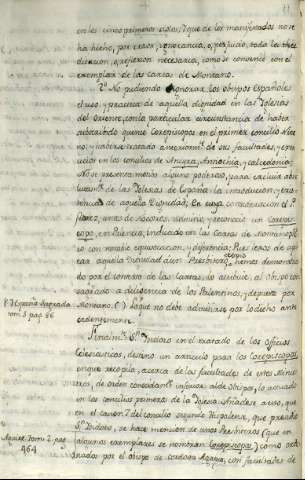 en los cinco primeros siglos, y que de los manifestados no se
ha hecho, por error, ignorancia, o perjuicio, toda la
distincion, o reflexion necesaria, como se convence con el
exemplar de las cartas de Montano.
2.º No pudiendo ignorar los obispos Españoles
el uso, y practica de aquella dignidad en las Iglesias
del Oriente, con la particular circunstancia de haber
subscribido quince Corepiscopos en el primer concilio Nice
no, y haberse tratado de sus facultades, y
en los concilios de Ancyra, Antiochia, y calcedonia;
No se presenta merito alguno poderoso, para excluir
de las Iglesias de España la introduccion, y
de aquella Dignidad; En cuya consideracion el P.
florez, reconocio un Corepis-
copo, en Palencia, indicado en las cartas de Montano
con notable equivocacion, y diferencia; Pues lexos de
aquella Dignidad a un Presbitero, hemos demonstra
do por el contexto de las cartas, no
sagrado a diligencia de los Palentinos, y depuesto por
Montano. () lo que no debe admitirse por lo dicho ante
cedentemente.
P. España Sagrada
tom. 5 pag. 86
S.n Isidoro en el tratado de los Officios
Eclesiasticos, destino un articulo para los Corepiscopos
en que recopila, acerca de las facultades de este Minis
terio, de orden inferior al de Obispos, lo acordado
en los concilios primeros de la Iglesia. Añadese a eso, que
en el canon 7 del concilio segundo Hispalense, que presidio
S.n Isidoro, se hace mencion de unos Presbiteros (que en
algunos exemplares se nombran Corepiscopos) como orde
nados por el obispo de Cordova Agapio, con facultades de
Aguirre. tomo 2. pag.
464